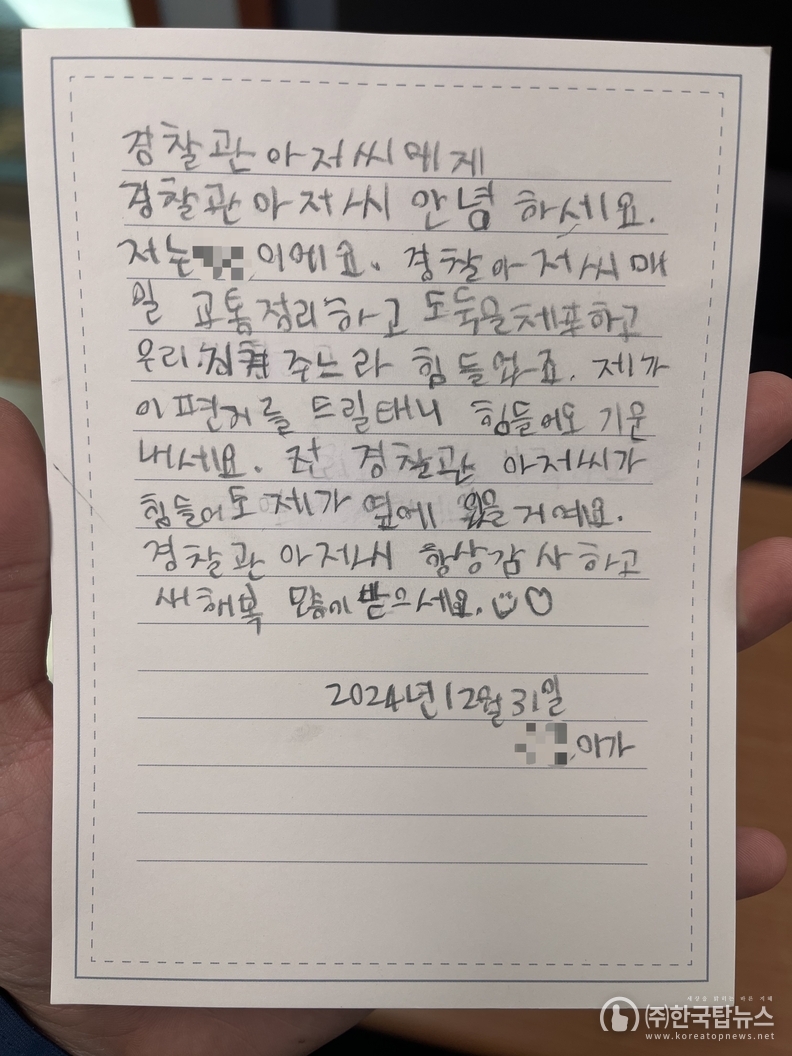 경찰관 아저씨에게
경찰관 아저씨 안녕 하세요.
저는 이에요. 경찰아저씨 매
일 교통정리하고 도둑을체포하고
우리 지켜 주느라 힘 들죠. 제가
이 편지를 드릴태니 힘들어도 기운
내세요. 전 경찰관 아저씨가
힘들어도 제가 옆에 있을 거에요.
경찰관 아저씨 항상감사하고
새해복 많이 받으세요.
2024년12월31일
이가
세상을 밝히는 바른 거래
㈜한국탑뉴스
www.koreatopnews.net